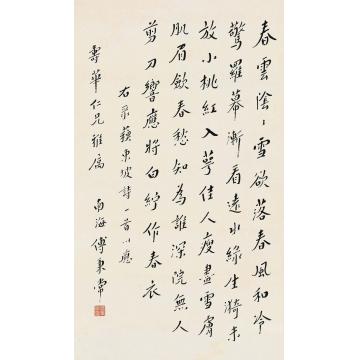 春雲陰〻雪欲落春風和冷
驚羅幕漸看遠水綠生漪未
放小桃紅入萼佳人瘦盡雪膚
肌眉斂春愁知為誰深院無人
剪刀響應將白紵作春衣
右录蘓東坡詩一首以應
壽華仁兄雅屬
南海傅秉常